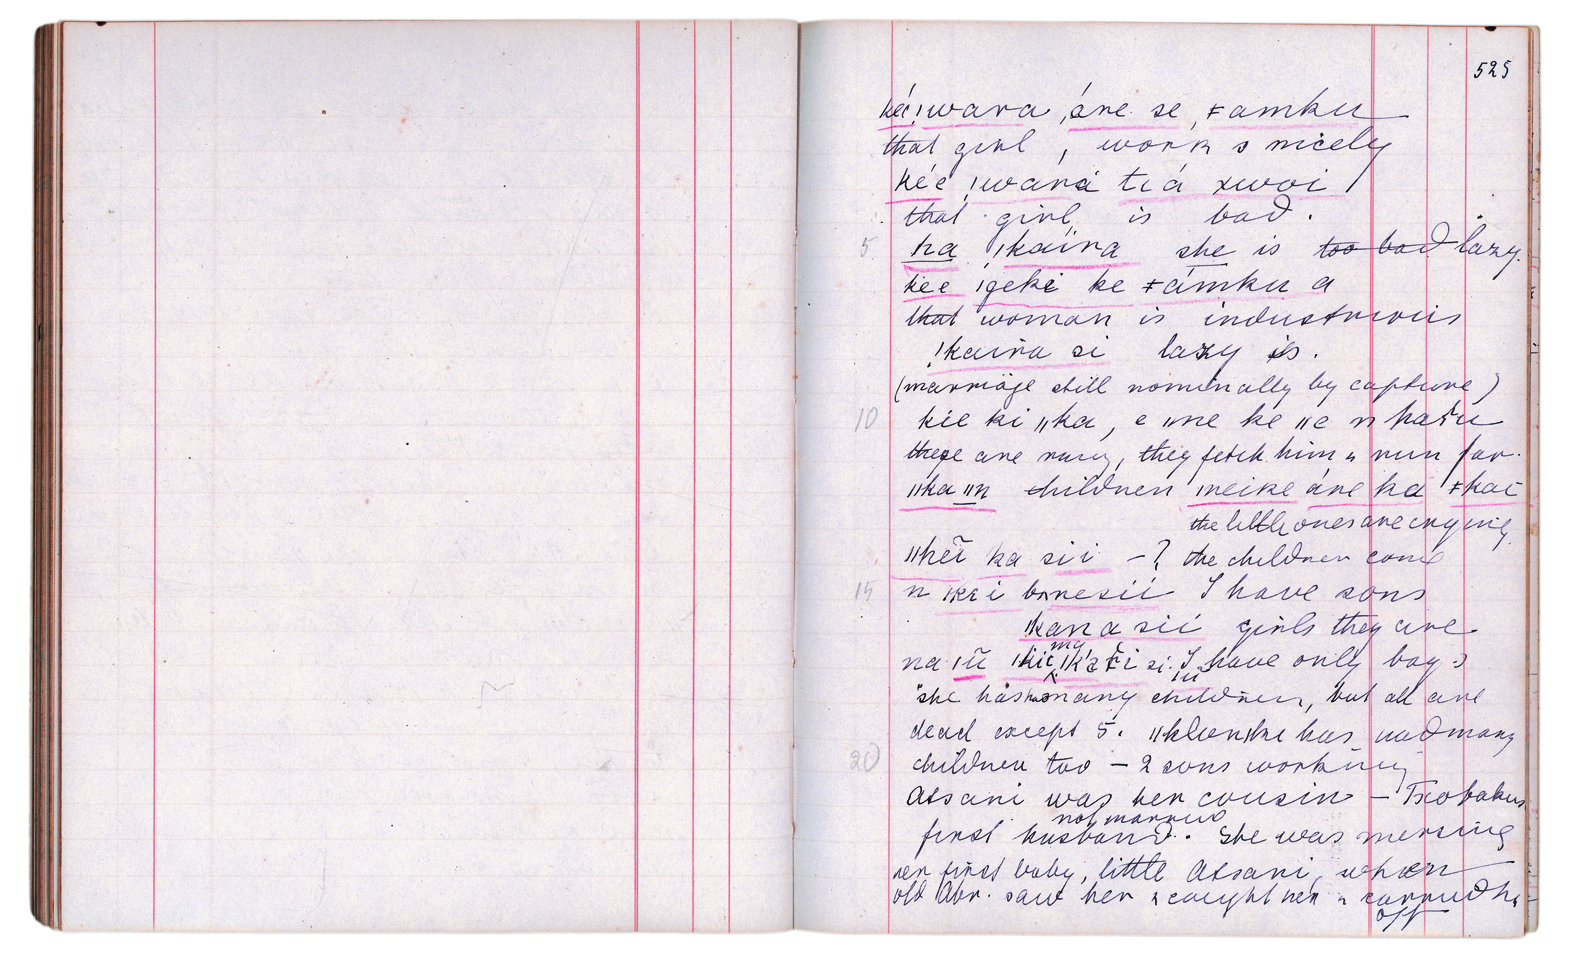 525
kéé !wara áne se, ǂamku
that girl, works nicely
kéé !wará tiá xwoi
that girl is bad.
5 ha !kaina she is too bad lazy.
kee !geke ke ǂámku a
that woman is industrious
!kaiña si lazy is.
(marriage still nominally by capture)
10 kíe ki ǁka, e ǁne ke ǁe n hatu
these are many, they fetch him & run far.
ǁka ǁn children ǀneike áne ka ǂkai
the little ones are crying
ǁkēi ka sii -? the children come
15 n ǀkei bonesii I have sons
!kana sii girls they are
na ǀū !kie ma ǀkati si. I have only boys
she has had many children, but all are
dead except 5. ǁklonǀke has had many
20 children too - 2 sons working
Atsani was her cousin - Txobakus
first husband. not married She was nursing
her first baby, little Atsani, when
old Abr. saw her & caught her & carried her
off